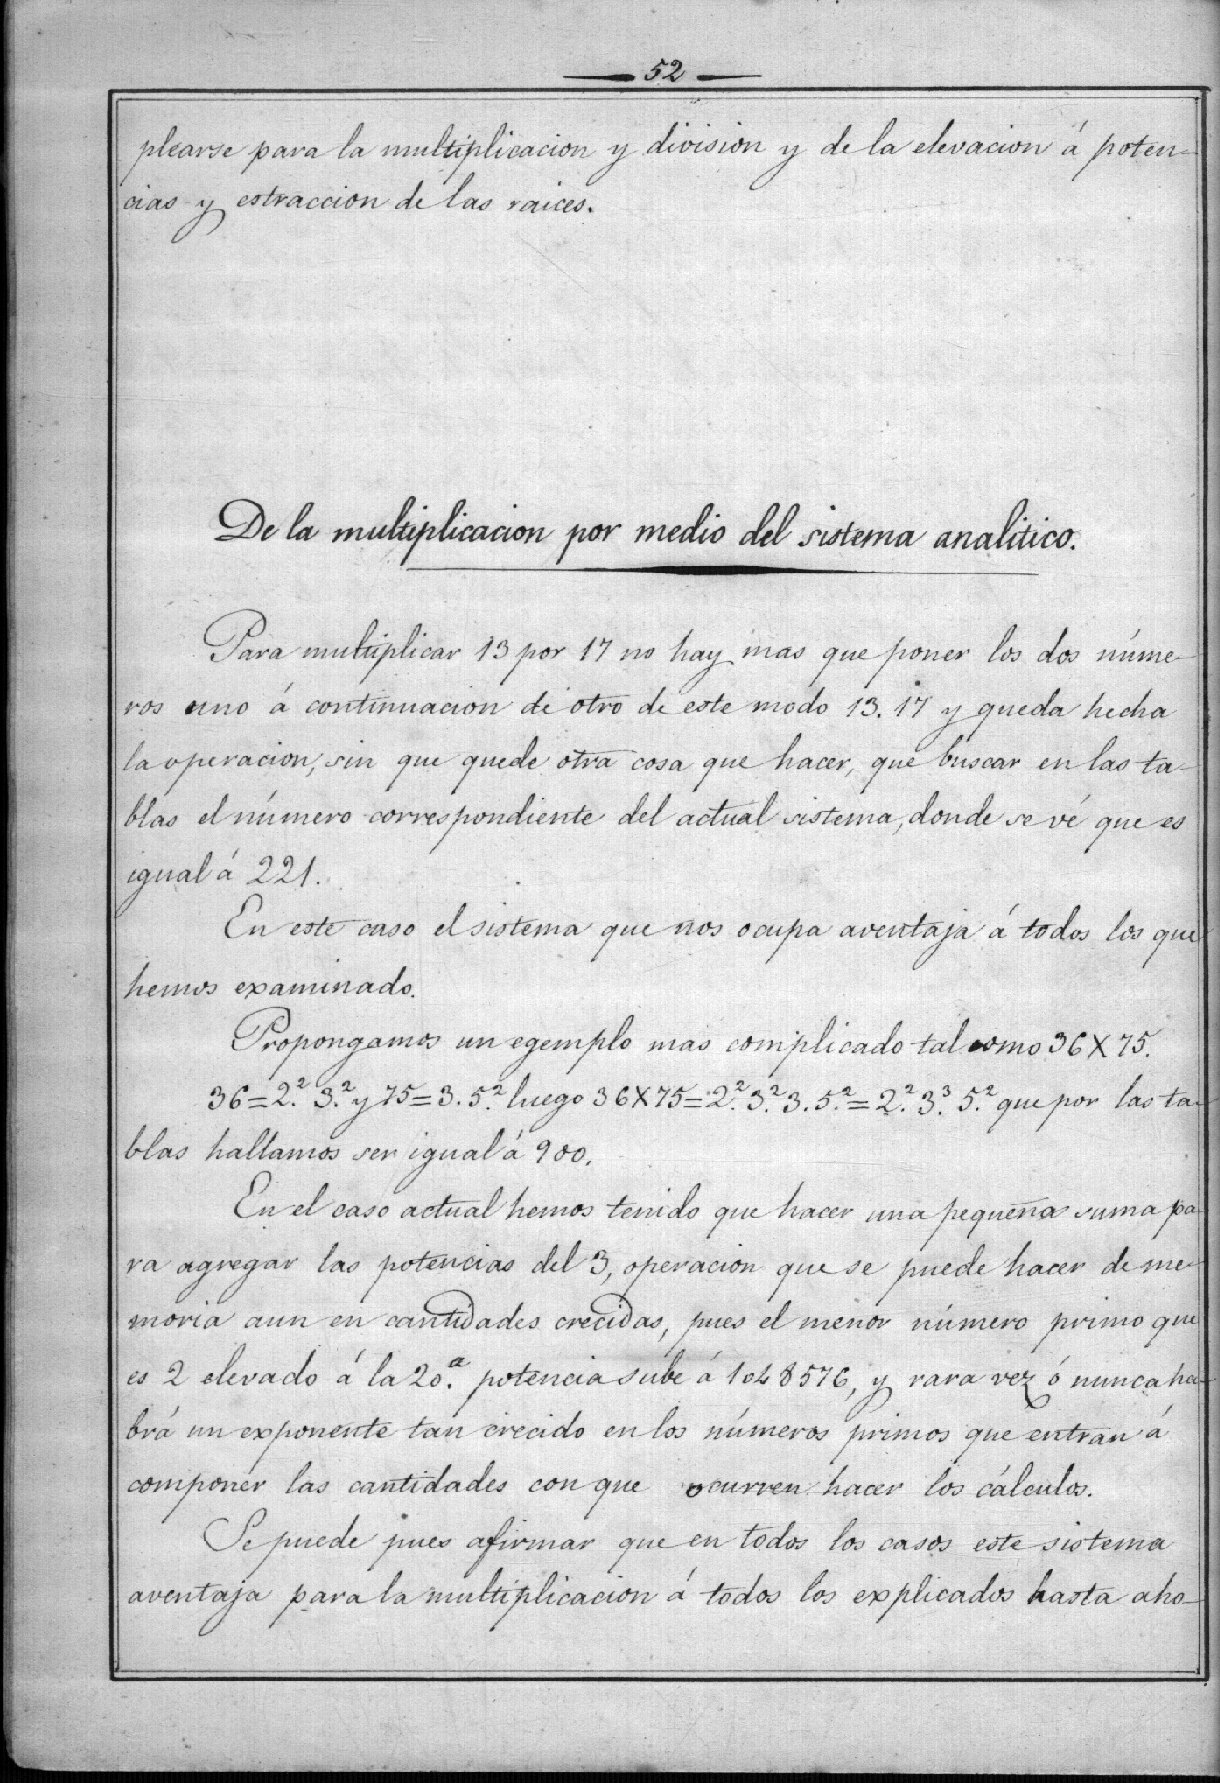 52
plearse para la multiplicacion y division y de la elevacion á poten-
cias y estraccion de las raices.
De la multiplicacion por medio del sistema analitico.
Para multiplicar 13 por 17 no hay mas que poner los dos núme-
ros uno á continuacion de otro de este modo 13. 17 y queda hecha
la operacion, sin que quede otra cosa que hacer, que buscar en las ta-
blas el número correspondiente del actual sistema, donde se vé que es
igual á 221.
En este caso el sistema que nos ocupa aventaja á todos los que
hemos examinado.
Propongamos un egemplo mas complicado tal como 36 X 75.
36 = 2.² 3.² y 75 = 3. 5.² luego 36 X 75 = 2.² 3.² 3. 5.² = 2.² 3.³ 5.² que por las ta-
blas hallamos ser igual á 900.
En el caso actual hemos tenido que hacer una pequeña suma pa-
ra agregar las potencias del 3, operacion que se puede hacer de me-
moria aun en cantidades crecidas, pues el menor número primo que
es 2 elevado á la 20.ª potencia sube á 1048576, y rara vez ó nunca ha-
brá un exponente tan crecido en los números primos que entran á
componer las cantidades con que ocurren hacer los cálculos.
Se puede pues afirmar que en todos los casos este sistema
aventaja para la multiplicacion á todos los explicados hasta aho-